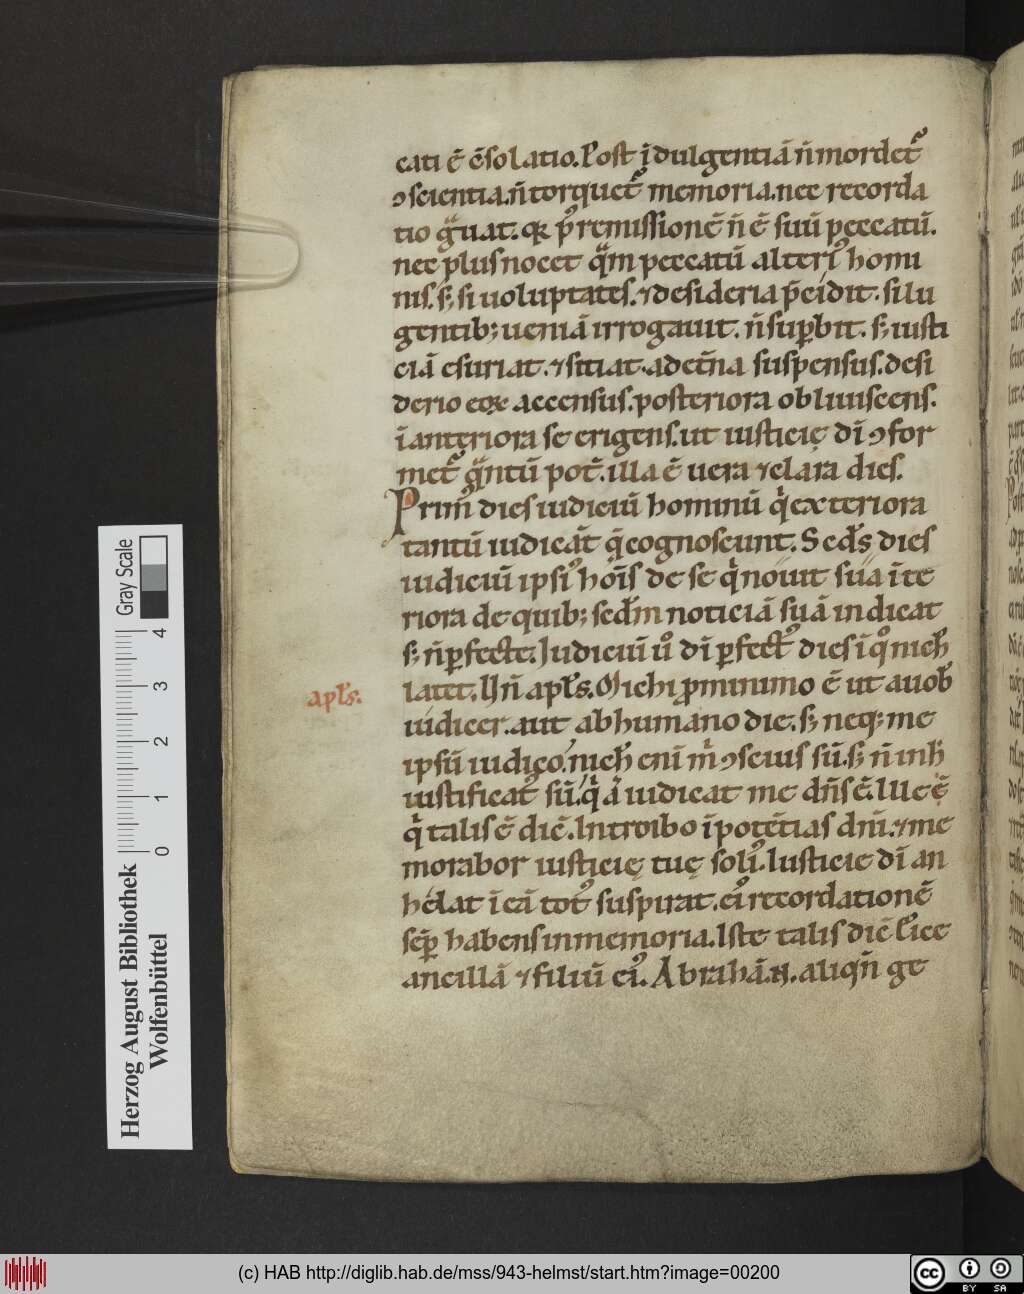 cati ē c̄solatio. Post īdulgentiā n̄ mordet᷑
ꝯscientia. n̄ torquet᷑ memoria. nec recorda
tio gͣuat. qꝛ p᷒t remissionē n̄ ē suū peccatū.
nec plus nocet qͣm peccatū alteriꝰ homi
nis. sꝫ si uoluptates. ⁊ desideria p̄cidit. si lu
gentibꝫ ueniā irrogauit. n̄ suꝑbit. sꝫ iusti
ciā esuriat. ⁊ sitiat. ad et̄na suspensus. desi
derio eoꝝ accensus. posteriora obliuiscens.
ī anteriora se erigens. ut iusticię dī ꝯfor
met᷑ qͣntū pot̄. illa ē uera ⁊ clara dies.
Primꝰ dies iudiciū hominū qͥ exteriora
tantū iudicāt q̄ cognoscunt. Scd̄s dies
iudiciū ipsiꝰ hōis de se qͥ nouit sua īte
riora de quibꝫ sed̄m noticiā suā indicat
sꝫ n̄ ꝑfecte. Iudiciū uͦ dī ꝑfectꝰ dies ī qͦ nich̄
latet. Hn̄ apl̄s. Michi ꝓ minimo ē ut a uob̄
iudicer. aut ab humano die. sꝫ neqꝫ me
ipsū iudico. nich̄ enī mͥ ꝯscius sū. sꝫ n̄ in h̄
iustificatꝰ sū. qͥ aͣ iudicat me dn̄s ē. luc ē
qͥ talis ē diē. Introibo ī potētias dn̄i. ⁊ me
morabor iusticię tuę soliꝰ. Iusticie dī an
helat ī eā totꝰ suspirat. eiꝰ recordationē
seꝑ habens in memoria. Iste talis diē eͥice
ancillā ⁊ filiū eiꝰ. Abrahā. N. aliqn̄ ge
apl̄s.
Herzog August Bibliothek
Wolfenbüttel
Gray Scale
0 1 2 3 4
(c) HAB http://diglib.hab.de/mss/943-helmst/start.htm?image=00200
cc BY SA